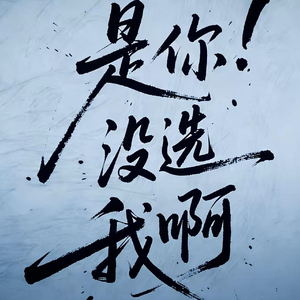 是你！
没选
我啊